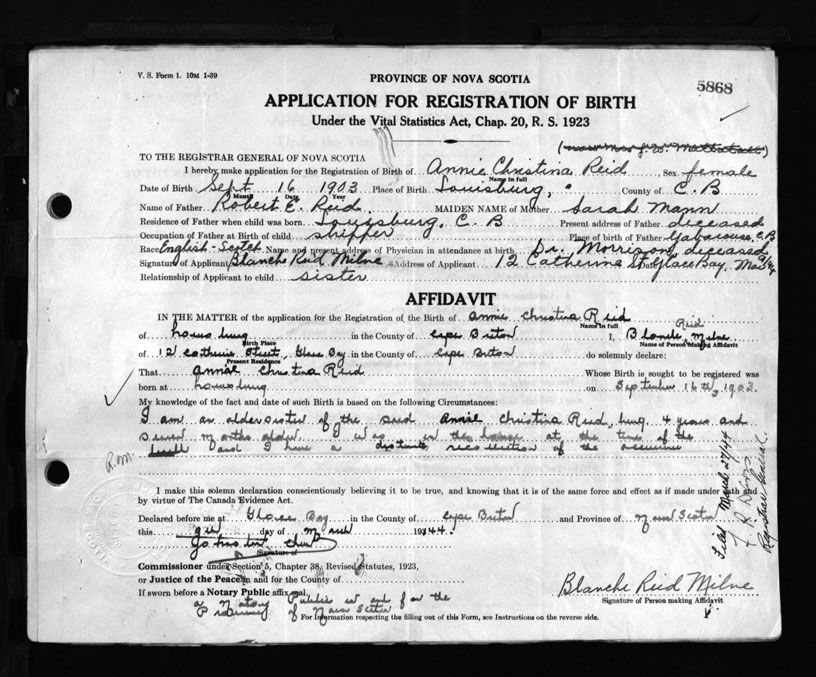 V. S. Form 1. 10M 1-39
PROVINCE OF NOVA SCOTIA
5868
APPLICATION FOR REGISTRATION OF BIRTH
Under the Vital Statistics Act, Chap. 20, R. S. 1923
TO THE REGISTRAR GENERAL OF NOVA SCOTIA
I hereby make application for the Registration of Birth of Annie Christina Reid Sex female
Name in full
Date of Birth Sept 16 1903 Place of Birth Louisburg, County of C. B
Month Date Year
Name of Father Robert E. Reid MAIDEN NAME of Mother Sarah Mann
Residence of Father when child was born Louisburg, C. B Present address of Father deceased
Occupation of Father at Birth of child Shipper Place of birth of Father Gabarouse, C. B
Race English-Scotch Name and present address of Physician in attendance at birth Dr. Morrison, deceased
Signature of Applicant Blanche Reid Milne Address of Applicant 12 Catherine St Glace Bay Date
Relationship of Applicant to child sister
AFFIDAVIT
IN THE MATTER of the application for the Registration of the Birth of Annie Christina Reid
Name in full
of Louisburg in the County of Cape Breton I, Blanche Reid Milne
Birth Place Name of Person Making Affidavit
of 12 Catherine Street, Glace Bay in the County of Cape Breton do solemnly declare:
Present Residence
That Annie Christina Reid Whose Birth is sought to be registered was
born at Louisburg on September 16th, 1903.
My knowledge of the fact and date of such Birth is based on the following Circumstances:
I am an older sister of the said Annie Christina Reid, being 4 years and
seven months older I was in the house at the time of the
birth and I have a distinct recollection of the occurrence
R.M.
Filed March 27/44
Registrar General
I make this solemn declaration conscientiously believing it to be true, and knowing that it is of the same force and effect as if made under oath and
by virtue of The Canada Evidence Act.
Declared before me at Glace Bay in the County of Cape Breton and Province of Nova Scotia
this day of March 1944.
Signature of
Commissioner under Section 5, Chapter 38, Revised Statutes, 1923,
or Justice of the Peace in and for the County of
If sworn before a Notary Public affix seal.
A Notary Public in and for the
Province of Nova Scotia
Blanche Reid Milne
Signature of Person making Affidavit
For Information respecting the filling out of this Form, see Instructions on the reverse side.